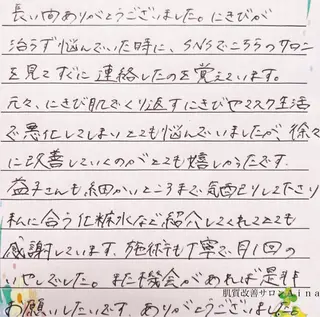 長い間ありがとうございました。にきびが
治らず悩んでいた時に、SNSでこちらのサロン
を見てすぐに連絡したのを覚えています。
元々、にきび肌でくり返すにきびやマスク生活
で悪化してしまいとても悩んでいましたが、徐々
に改善していくのがとても嬉しかったです。
益子さんも細かいところまで気配りして下さり
私に合う化粧水など紹介してくれてとても
感謝しています。施術も丁寧で月1回の
いやしでした。また機会があれば是非
お願いしたいです。ありがとうございました。
肌質改善サロンLina